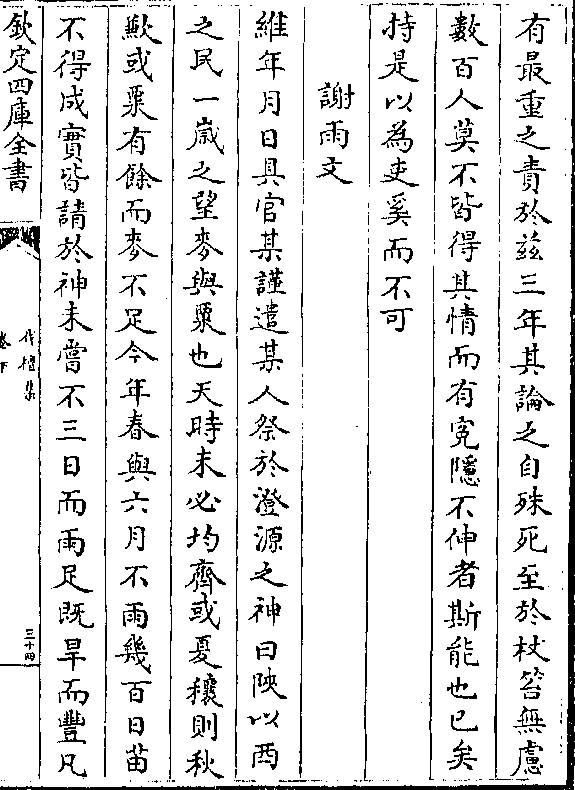 有最重之責於茲三年其論之自殊死至於杖笞無慮
數百人莫不皆得其情而有寃隱不伸者斯能也已矣
持是以為吏奚而不可
謝雨文
維年月日具官某謹遣某人祭於澄源之神曰陜以西
之民一歲之望麥與粟也天時未必均齊或夏穰則秋
歉或粟有餘而麥不足今年春與六月不雨幾百日苗
不得成實皆請於神未嘗不三日而雨足既旱而豐凡
欽定四庫全書
伐檀集
卷下
三十四